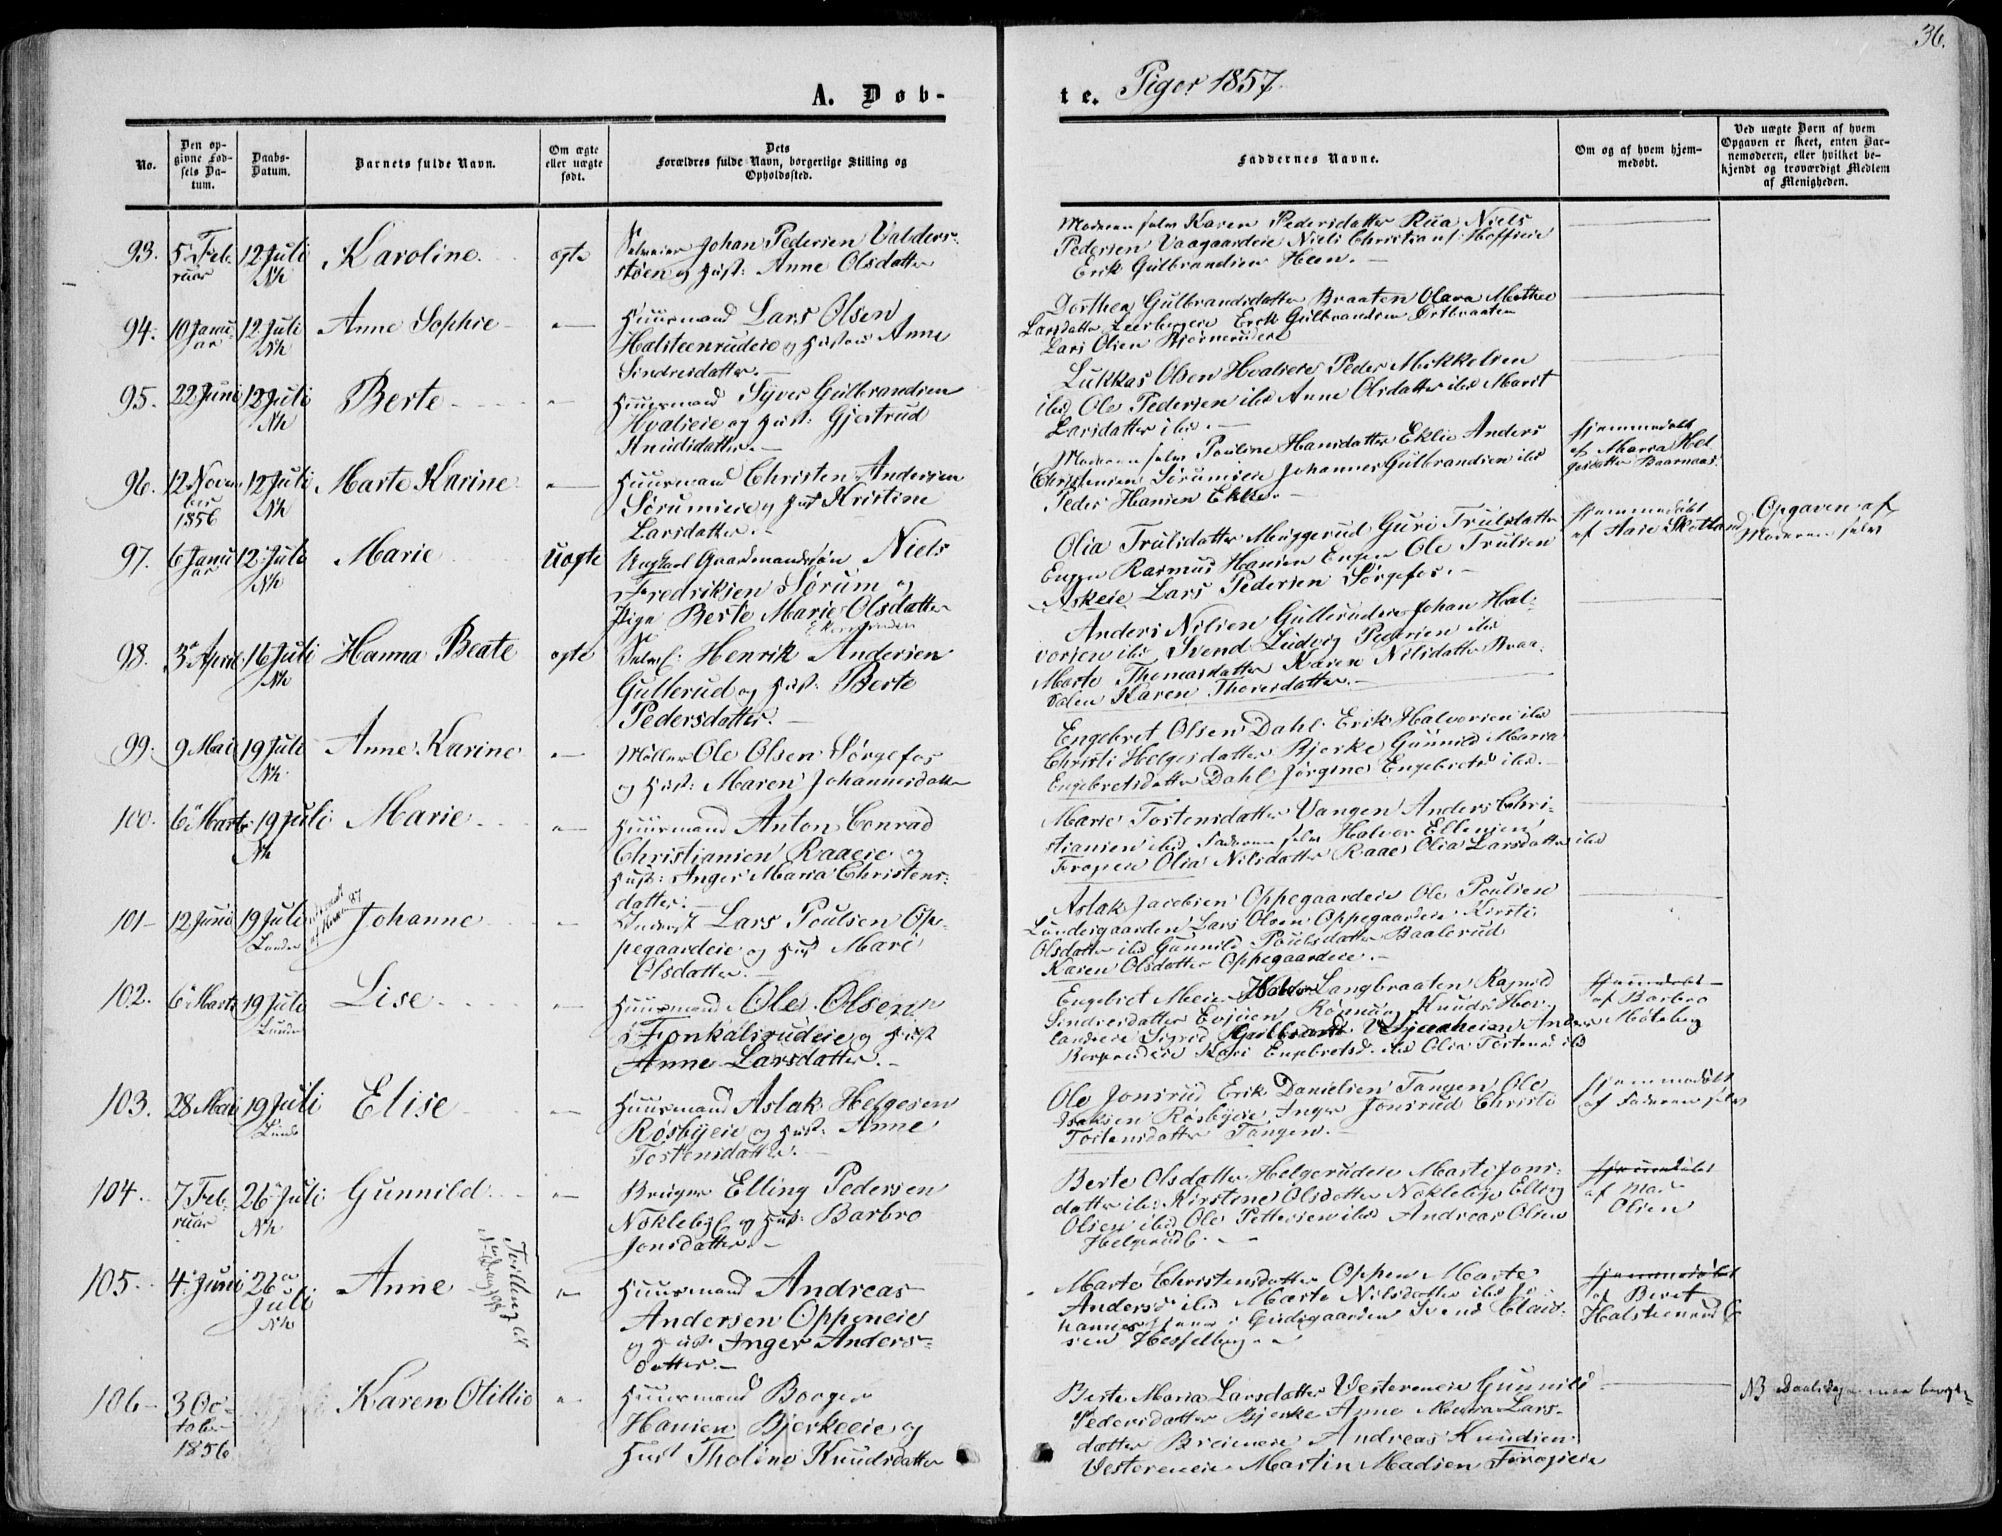 36.
A. Døb-
te. Piger 1857.
No.
Den op-
givne Fød-
sels Da-
tum.
Daabs-
Datum.
Barnets fulde Navn.
Om ægte
eller uægte
født.
Dets
Forældres fulde Navn, borgerlige Stilling og
Opholdssted.
Faddernes Navne.
Om og af hvem hjem-
medøbt.
Ved uægte Børn af hvem
Opgaven er skeet, enten Bar-
nemoderen, eller hvilket be-
kjendt og troværdigt Medlem
af Menigheden.
93. 5 Feb-
ruar
12 Juli
Nk
Karoline
ægte
Selveier Johan Pedersen Valders-
støen og Hust: Anne Olsdatter
Moderen selv Karen Pedersdatter Rua Niels
Pedersen Vaagaardeie Niels Christians: Hoffseie
Erik Gulbrandsen Heen.
94. 10 Janu-
ar
12 Juli
Nk
Anne Sophie
Huusmand Lars Olsen
Halsteenrudeie og Hustru Anne
Sindresdatter.
Dorthea Gulbrandsdatter Braaten Olava Marthe
Larsdatter Erik Gulbrandsen
Lars Olsen Bjørnerudeie
95. 22 Juni
12 Juli
Nk
Berte
Huusmand Syver Gulbrandsen
Hvalseie og Hust: Gjertrud
Knudsdatter.
Lukkas Olsen Hvalseie Peder Mikkelsen
ibd Ole Pedersen ibd Anne Olsdatter ibd Marit
Larsdatter ibd.
96. 12 Novem-
ber
1856
12 Juli
Nk
Marte Karine
Huusmand Christen Andersen
Sørumeie og Hust Kristine
Larsdatter.
Moderen selv Pauline Hansdatter Eklie Anders
Christensen Sørumeie Johannes Gulbrandsen ibd
Peder Hansen Eklie.
Hjemmedøbt
af Maria Hel-
gesdatter Baarnaas
97. 6 Janu-
ar
12 Juli
Nk
Marie
uægte
Ungkarl Gaardmandssøn Niels
Fredriksen Sørum og
Pige Berte Marie Olsdatter
Olia Trulsdatter Muggerud Guri Trulsdatter
Engen Rasmus Hansen Engen Ole Trulsen
Askeie Lars Pedersen Sørgefos.
Hjemmedøbt
af Aase Skotland
Opgaven af
Moderen selv
98. 3 April
16 Juli
Nk
Hanna Beate
ægte
Selvei: Henrik Andersen
Gullerud og Hust: Berte
Pedersdatter.
Anders Nilsen Gullerudeie Johan Hal-
vorsen ibd Svend Ludvig Pedersen ibd
Marte Thomasdatter Karen Nilsdatter Braa-
ten Karen Thoresdatter.
99. 9 Mai
19 Juli
Nk
Anne Karine
Møller Ole Olsen Sørgefos
og Hust: Maren Johannesdatter
Engebret Olsen Dahl Erik Halvorsen ibd
Christi Helgesdatter Bjerke Gunnild Maria
Engebretsdatter Dahl Jørgine Engebrets ibd.
100. 6 Marts
19 Juli
Nk
Marie
Huusmand Anton Conrad
Christiansen Raaeie og
Hust: Inger Maria Christens-
datter.
Marie Tostensdatter Vangen Anders Chri-
stiansen ibd Faderen selv Halvor Ellensen
Frøgen Olia Nilsdatter Raae Olia Larsdatter ibd
101 12 Juni
19 Juli
Lunder
Johanne
Inderst Lars Poulsen Op-
pegaardeie og Hust Mari
Olsdatter.
Aslak Jacobsen Oppegaardeie Ole Poulsen
Lundesgaarden Lars Olsen Oppegaardeie Kirsti
Olsdatter ibd Gunnild Poulsdatter Baalerud
Karen Olsdatter Oppegaardeie.
102. 6 Marts
19 Juli
Lunder
Lise
Huusmand Ole Olsen
Fonkalsrudeie og Hust
Anne Larsdatter.
Engebret Langbraaten Ragnild
Sindresdatter Knuds
Sigrid Anders
Kari Engebretsd. ibd Olia Tostens ibd
Hjemmedøbt
af Barbro
103. 28 Mai
19 Juli
Lunde
Elise
Huusmand Aslak Helgesen
Røsbyeie og Hust: Anne
Tostensdatter.
Ole Jonsrud Erik Danielsen Tangen Ole
Isaksen Røsbyeie Inger Jonsrud Christi
Tostensdatter Tangen.
Hjemmedøbt
af Faderen selv
104. 7 Feb-
ruar
26 Juli
Nk
Gunnild
Bruger Elling Pedersen
Nøkleby og Hust: Barbro
Jonsdatter.
Berte Olsdatter Helgerudeie Marte Jons-
datter ibd Kirstine Olsdatter Nøkleby Elling
Olsen ibd Ole Pettersen ibd Andreas Olsen
Helgerud
Hjemmedøbt
af
Olsen
105. 4 Juni
26
Juli
Nk
Anne
Tvilling
Huusmand Andreas
Andersen Oppeneie
og Hust: Inger Anders-
datter.
Marte Christensdatter Oppen Marte
Andersd ibd Marte Nilsdatter ibd Jo-
hannes Svend Claus-
sen Hesselberg
Hjemmedøbt
af Beret
Halsteenrud
106 3 Oc-
tober
1856
Karen Otillie
Huusmand Borger
Hansen Bjerkeeie og
Hust Tholine Knudsdatter
Berte Maria Larsdatter Vestereneie Gunnild
Pedersdatter Bjerke Anne Maria Lars-
datter Andreas Knudsen
Vestereneie Martin Madsen Frøgeneie
NB Daabsdagen